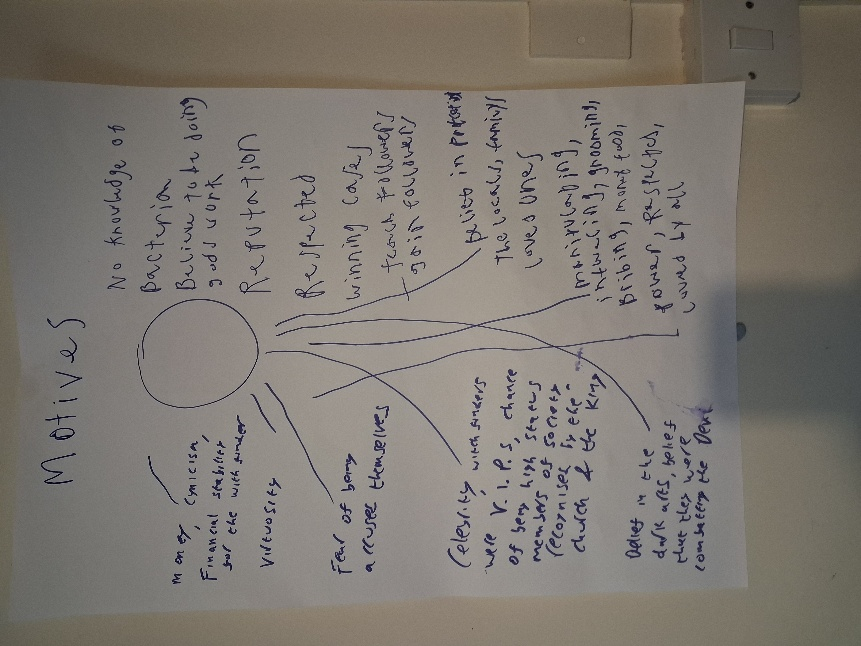 Motives
money, cynicism,
Financial stability
for the witchfinder
virtuosity
Fear of being
accused themselves
Celebrity witchfinders
were V.I.P.S, chance
of being high status
members of society
recognised by the
church & the King
Belief in the
dark arts, belief
that they were
combatting the Devil
No knowledge of
bacterion
Believe to be doing
gods work
Reputation
Respected
winning cases
teach followers
gain followers
belief in
the locals, familys
loved ones
manipulating,
grooming,
bribing, money food,
power, respected,
loved by all